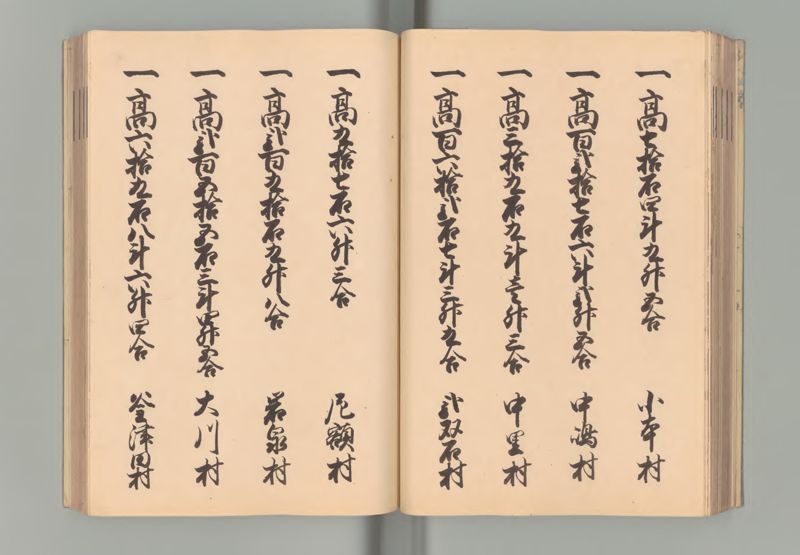 一高七拾石四斗九升五合 小本村
一高百弐拾七石六斗弐升五合 中嶋村
一高三拾九石九斗壱升三合 中里村
一高百六拾弐石七斗三升九合 弐双石村
一高九拾七石六升三合 尼額村
一高弐百九拾石九升八合 岩泉村
一高弐百五拾五石三斗四升五合 大川村
一高六拾九石八斗六升四合 釜津田村